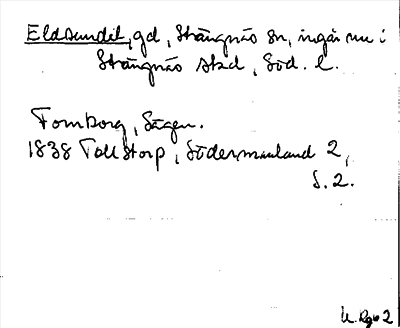 Eldsundet, gd, Strängnäs sn, ingår nu i
Strängnäs stad, Söd. l.
Fornborg, Sägen.
1838 Tollstorp, Södermanland 2,
S. 2.